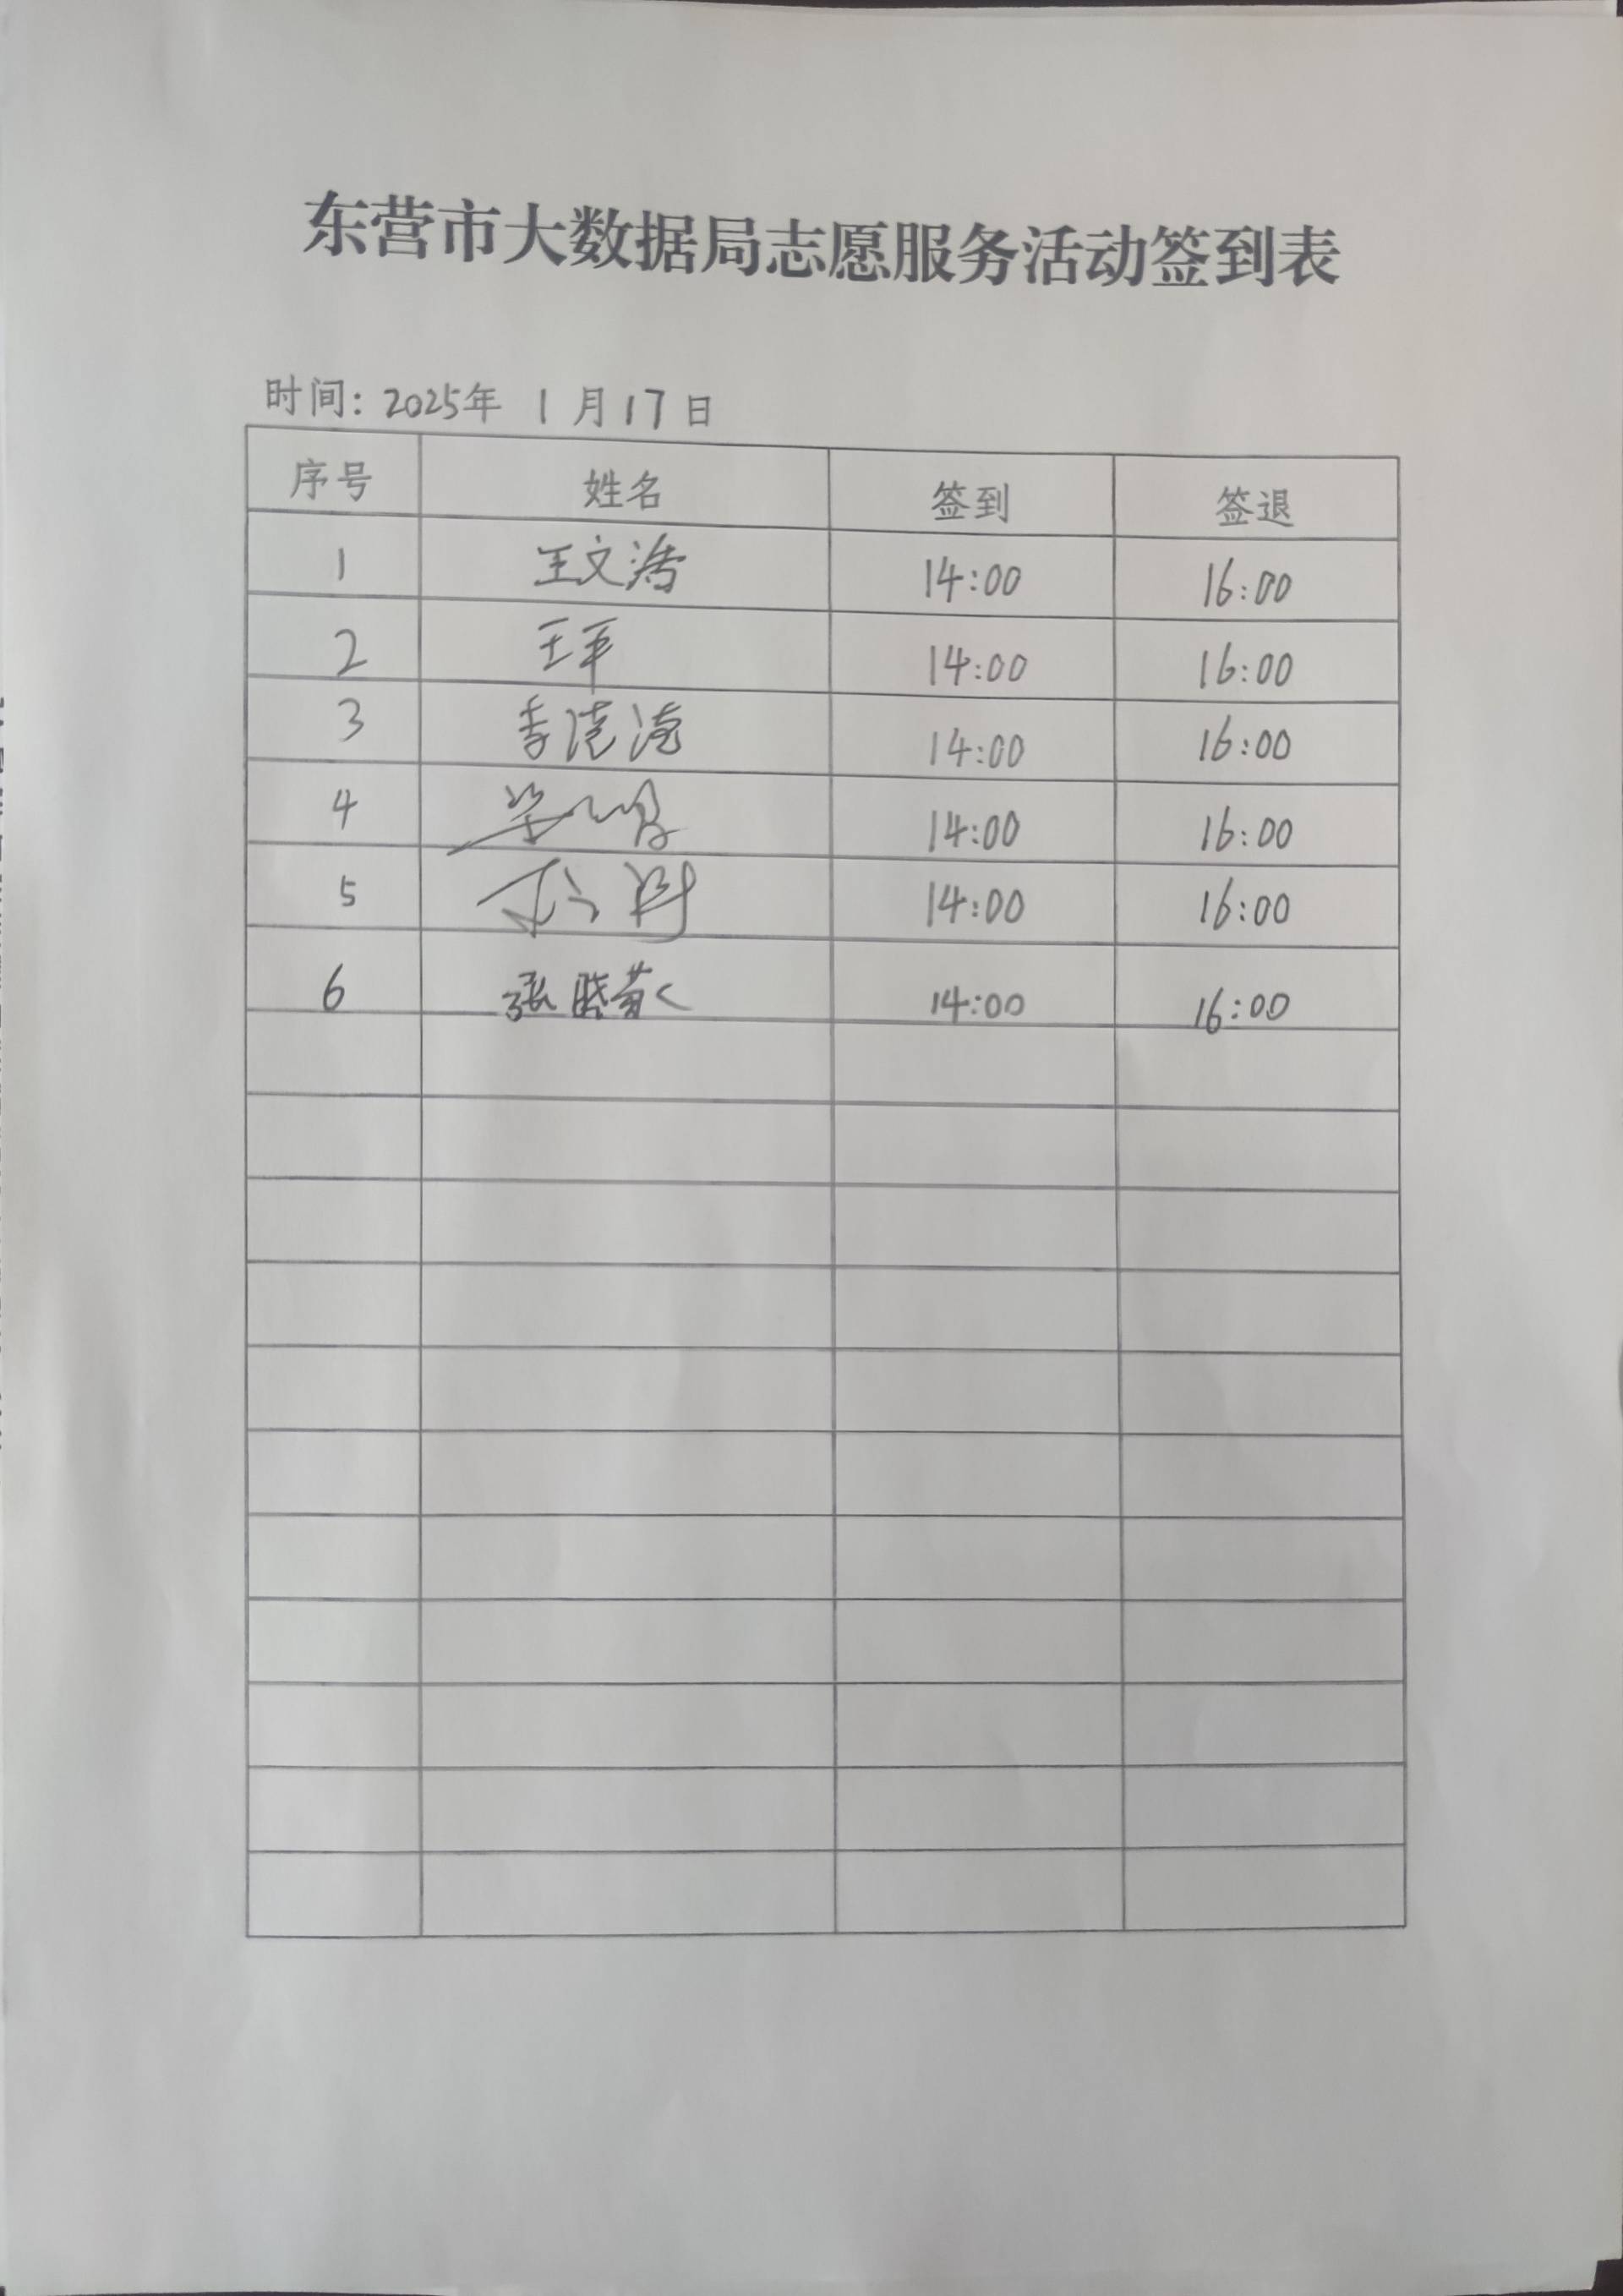 东营市大数据局志愿服务活动签到表
时间: 2025年 1 月 17 日
序号 姓名 签到 签退
1 王文涛 14:00 16:00
2 王平 14:00 16:00
3 李 14:00 16:00
4 14:00 16:00
5 14:00 16:00
6 张晓 14:00 16:00